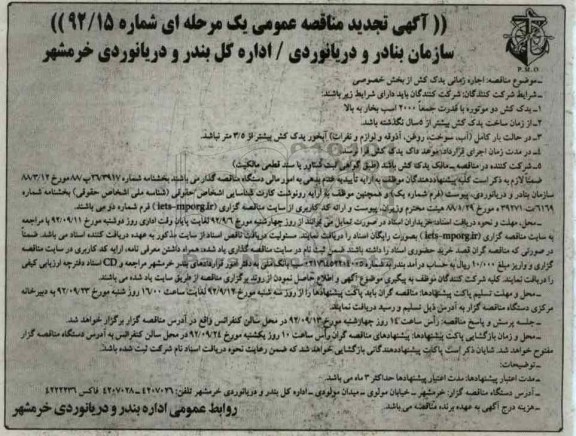 (( آگهی تجدید مناقصه عمومی یک مرحله ای شماره ۹۲/۱۵ ))
سازمان بنادر و دریانوردی / اداره کل بندر و دریانوردی خرمشهر
P.M.O
ـ موضوع مناقصه: اجاره زمانی یدک کش از بخش خصوصی
ـ شرایط شرکت کنندگان: شرکت کنندگان باید دارای شرایط زیر باشند:
۱ـ یدک کش دو موتوره با قدرت جمعاً ۲۰۰۰ اسب بخار به بالا
۲ـ از زمان ساخت یدک کش بیشتر از ۵سال نگذشته باشد.
۳ـ در حالت بار کامل (آب، سوخت، روغن، آذوقه و لوازم و نفرات) آبخور یدک کش بیشتر از ۳/۵ متر نباشد.
۴ـ در مدت زمان اجرای قرارداد، موعد داک یدک کش فرا نرسد.
۵ـ شرکت کننده در مناقصه ـ مالک یدک کش باشد (طبق گواهی ثبت شناور یا سند قطعی مالکیت)
ضمناً لازم به ذکر است کلیه پیشنهاددهندگان موظف به ارایه تأییدیه ختم بدهی به امور مالی دستگاه مناقصه گذار می باشند بخشنامه شماره
سازمان بنادر و دریانوردی، پیوست (فرم شماره یک) و همچنین موظف به ارایه رونوشت کارت شناسایی اشخاص حقوقی (شناسه ملی اشخاص حقوقی) بخشنامه شماره
هیئت محترم وزیران، پیوست و ارائه کد کاربری از سایت مناقصه گزاری (iets-mporg.ir) فرم شماره دو می باشند.
ـ محل، مهلت و نحوه دریافت اسناد: خریداران اسناد در صورت تمایل می توانند از روز چهارشنبه مورخ ۹۲/۹/۶ لغایت پایان وقت اداری روز دوشنبه مورخ ۹۲/۰۹/۱۱ با مراجعه
به سایت مناقصه گزاری (iets-mporg.ir) بصورت رایگان اسناد را دریافت نمایند. مسئولیت دریافت ناقص اسناد از سایت مذکور به عهده دریافت کننده اسناد می باشد. ضمناً
در صورتی که مناقصه گران قصد خرید حضوری اسناد را داشته باشند ضمن ثبت نام در سایت مناقصه گذاری یاد شده، همراه داشتن معرفی نامه، ارایه کد کاربری در سایت مناقصه
گزاری و واریز مبلغ ۱۰۰/۰۰۰ ریال به حساب درآمد بندر به شماره بانک ملی به دفتر امور قراردادهای بندر خرمشهر مراجعه و CD اسناد دفترچه ارزیابی کیفی
را دریافت نمایند. کلیه شرکت کنندگان موظف به پیگیری موضوع آگهی و اطلاع حاصل نمودن از روند برگزاری مناقصه از طریق سایت یاد شده می باشند.
ـ محل و مهلت تسلیم پاکت پیشنهادها: مناقصه گران باید پاکت پیشنهادها را از روز سه شنبه مورخ ۹۲/۹/۱۲ لغایت ساعت ۱۶/۰۰ روز شنبه مورخ ۹۲/۰۹/۲۳ به دبیرخانه
مرکزی دستگاه مناقصه گزار به آدرس ذیل تسلیم و رسید دریافت نمایند.
ـ جلسه پرسش و پاسخ مناقصه: رأس ساعت ۱۴ روز چهارشنبه مورخ ۹۲/۰۹/۱۳ در محل سالن کنفرانس واقع در آدرس مناقصه گزار برگزار خواهد شد.
ـ محل و زمان بازگشایی پاکت پیشنهادها: پیشنهادهای مناقصه گران رأس ساعت ۱۰ روز یکشنبه مورخ ۹۲/۰۹/۲۴ در محل سالن کنفرانس به آدرس دستگاه مناقصه گزار
مفتوح خواهد شد. شایان ذکر است پاکات پیشنهاددهندگانی بازگشایی خواهد شد که ضمن رعایت نحوه دریافت اسناد نام شرکت ثبت شده باشد.
ـ توضیحات:
ـ مدت اعتبار پیشنهادها: مدت اعتبار پیشنهادها حداکثر ۳ ماه می باشد.
ـ آدرس دستگاه مناقصه گزار: خرمشهر ـ خیابان مولوی ـ میدان مولودی ـ اداره کل بندر و دریانوردی خرمشهر تلفن: ۴۲۰۷۰۲۶ ـ ۴۲۰۷۰۲۸ فاکس ۴۲۲۲۴۳۶
ـ هزینه درج آگهی به عهده برنده مناقصه می باشد.
روابط عمومی اداره بندر و دریانوردی خرمشهر